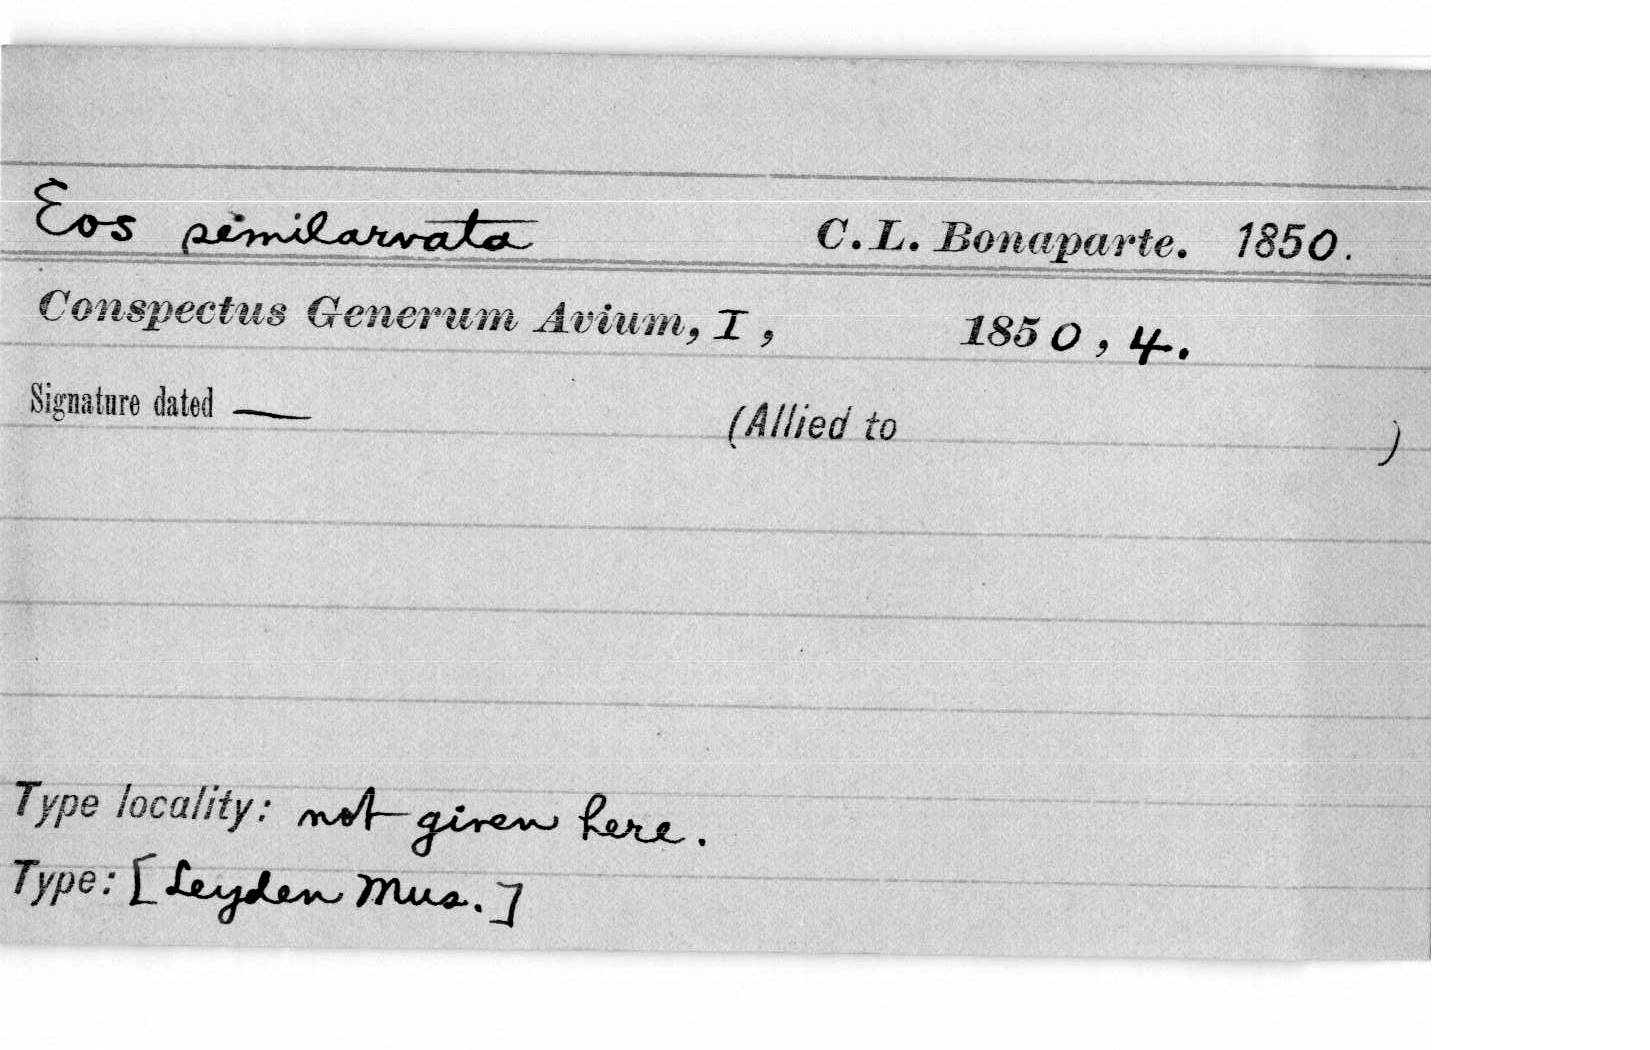 Eos similarvata C. L. Bonaparte. 1850.
Conspectus Generum Avium, I, 1850, 4.
Signature dated — (Allied to )
Type locality: not given here.
Type: [Leyden Mus.]